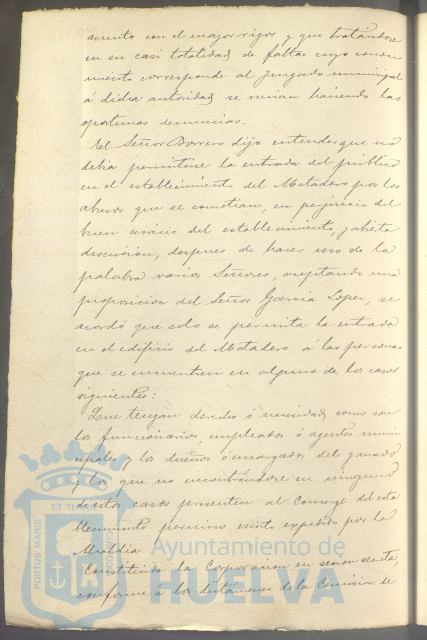 asunto con el mayor rigor y que tratándose
en su casi totalidad de faltas cuyo conoci
miento corresponde al juzgado municipal
á dicha autoridad se venian haciendo las
oportunas denuncias.
El Señor Borrero dijo entender que no
debia permitirse la entrada del público
en el establecimiento del Matadero por los
abusos que se cometian, en perjuicio del
buen servicio del establecimiento, y abierta
discusión, despues de hacer uso de la
palabra varios Señores, aceptando una
proposicion del Señor Garcia Lopez, se
acordó que solo se permita la entrada
en el edificio del Matadero á las personas
que se encuentren en alguno de los casos
siguientes:
Que tengan derecho ó necesidad como son
los funcionarios, empleados ó agentes muni
cipales y los dueños ó encargados del ganado
y los que no encontrándose en ninguno
de estos casos presenten al Conserge del esta
blecimiento permiso escrito expedido por la
Alcaldia
Constituida la Corporacion en sesión secreta,
conforme á los dictámenes de la Comision de
PORTUS MARIS
ET TERRAE
Ayuntamiento de
HUELVA